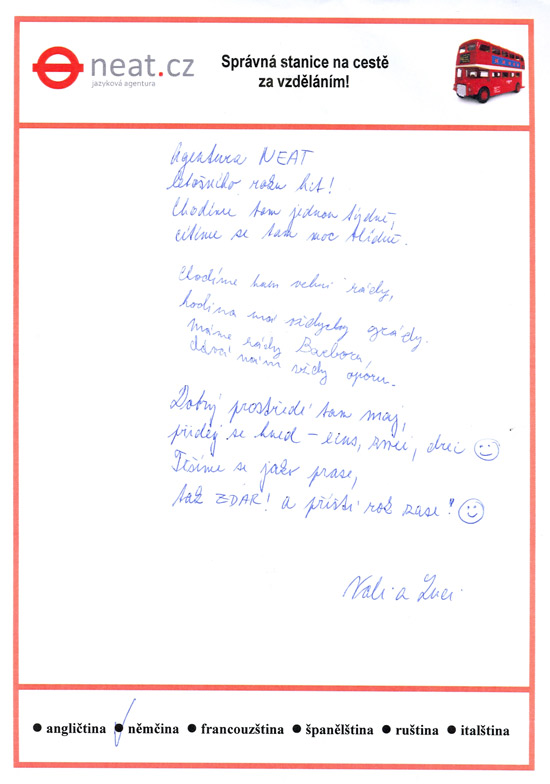 neat.cz
jazyková agentura
Správná stanice na cestě
za vzděláním!
Agentura NEAT
letošního roku hit!
Chodíme tam jednou týdně,
cítíme se tam moc klidně.
Chodíme tam velmi rády,
hodina má vždycky grády.
Máme rády Barboru,
dává nám vždy oporu.
Dobrý prostředí tam maj,
přiděj se hned – eins, zwei, drei
Těšíme se jako prase,
tak ZDAR! a příští rok zase!
Vali a Luci
• angličtina • němčina • francouzština • španělština • ruština • italština